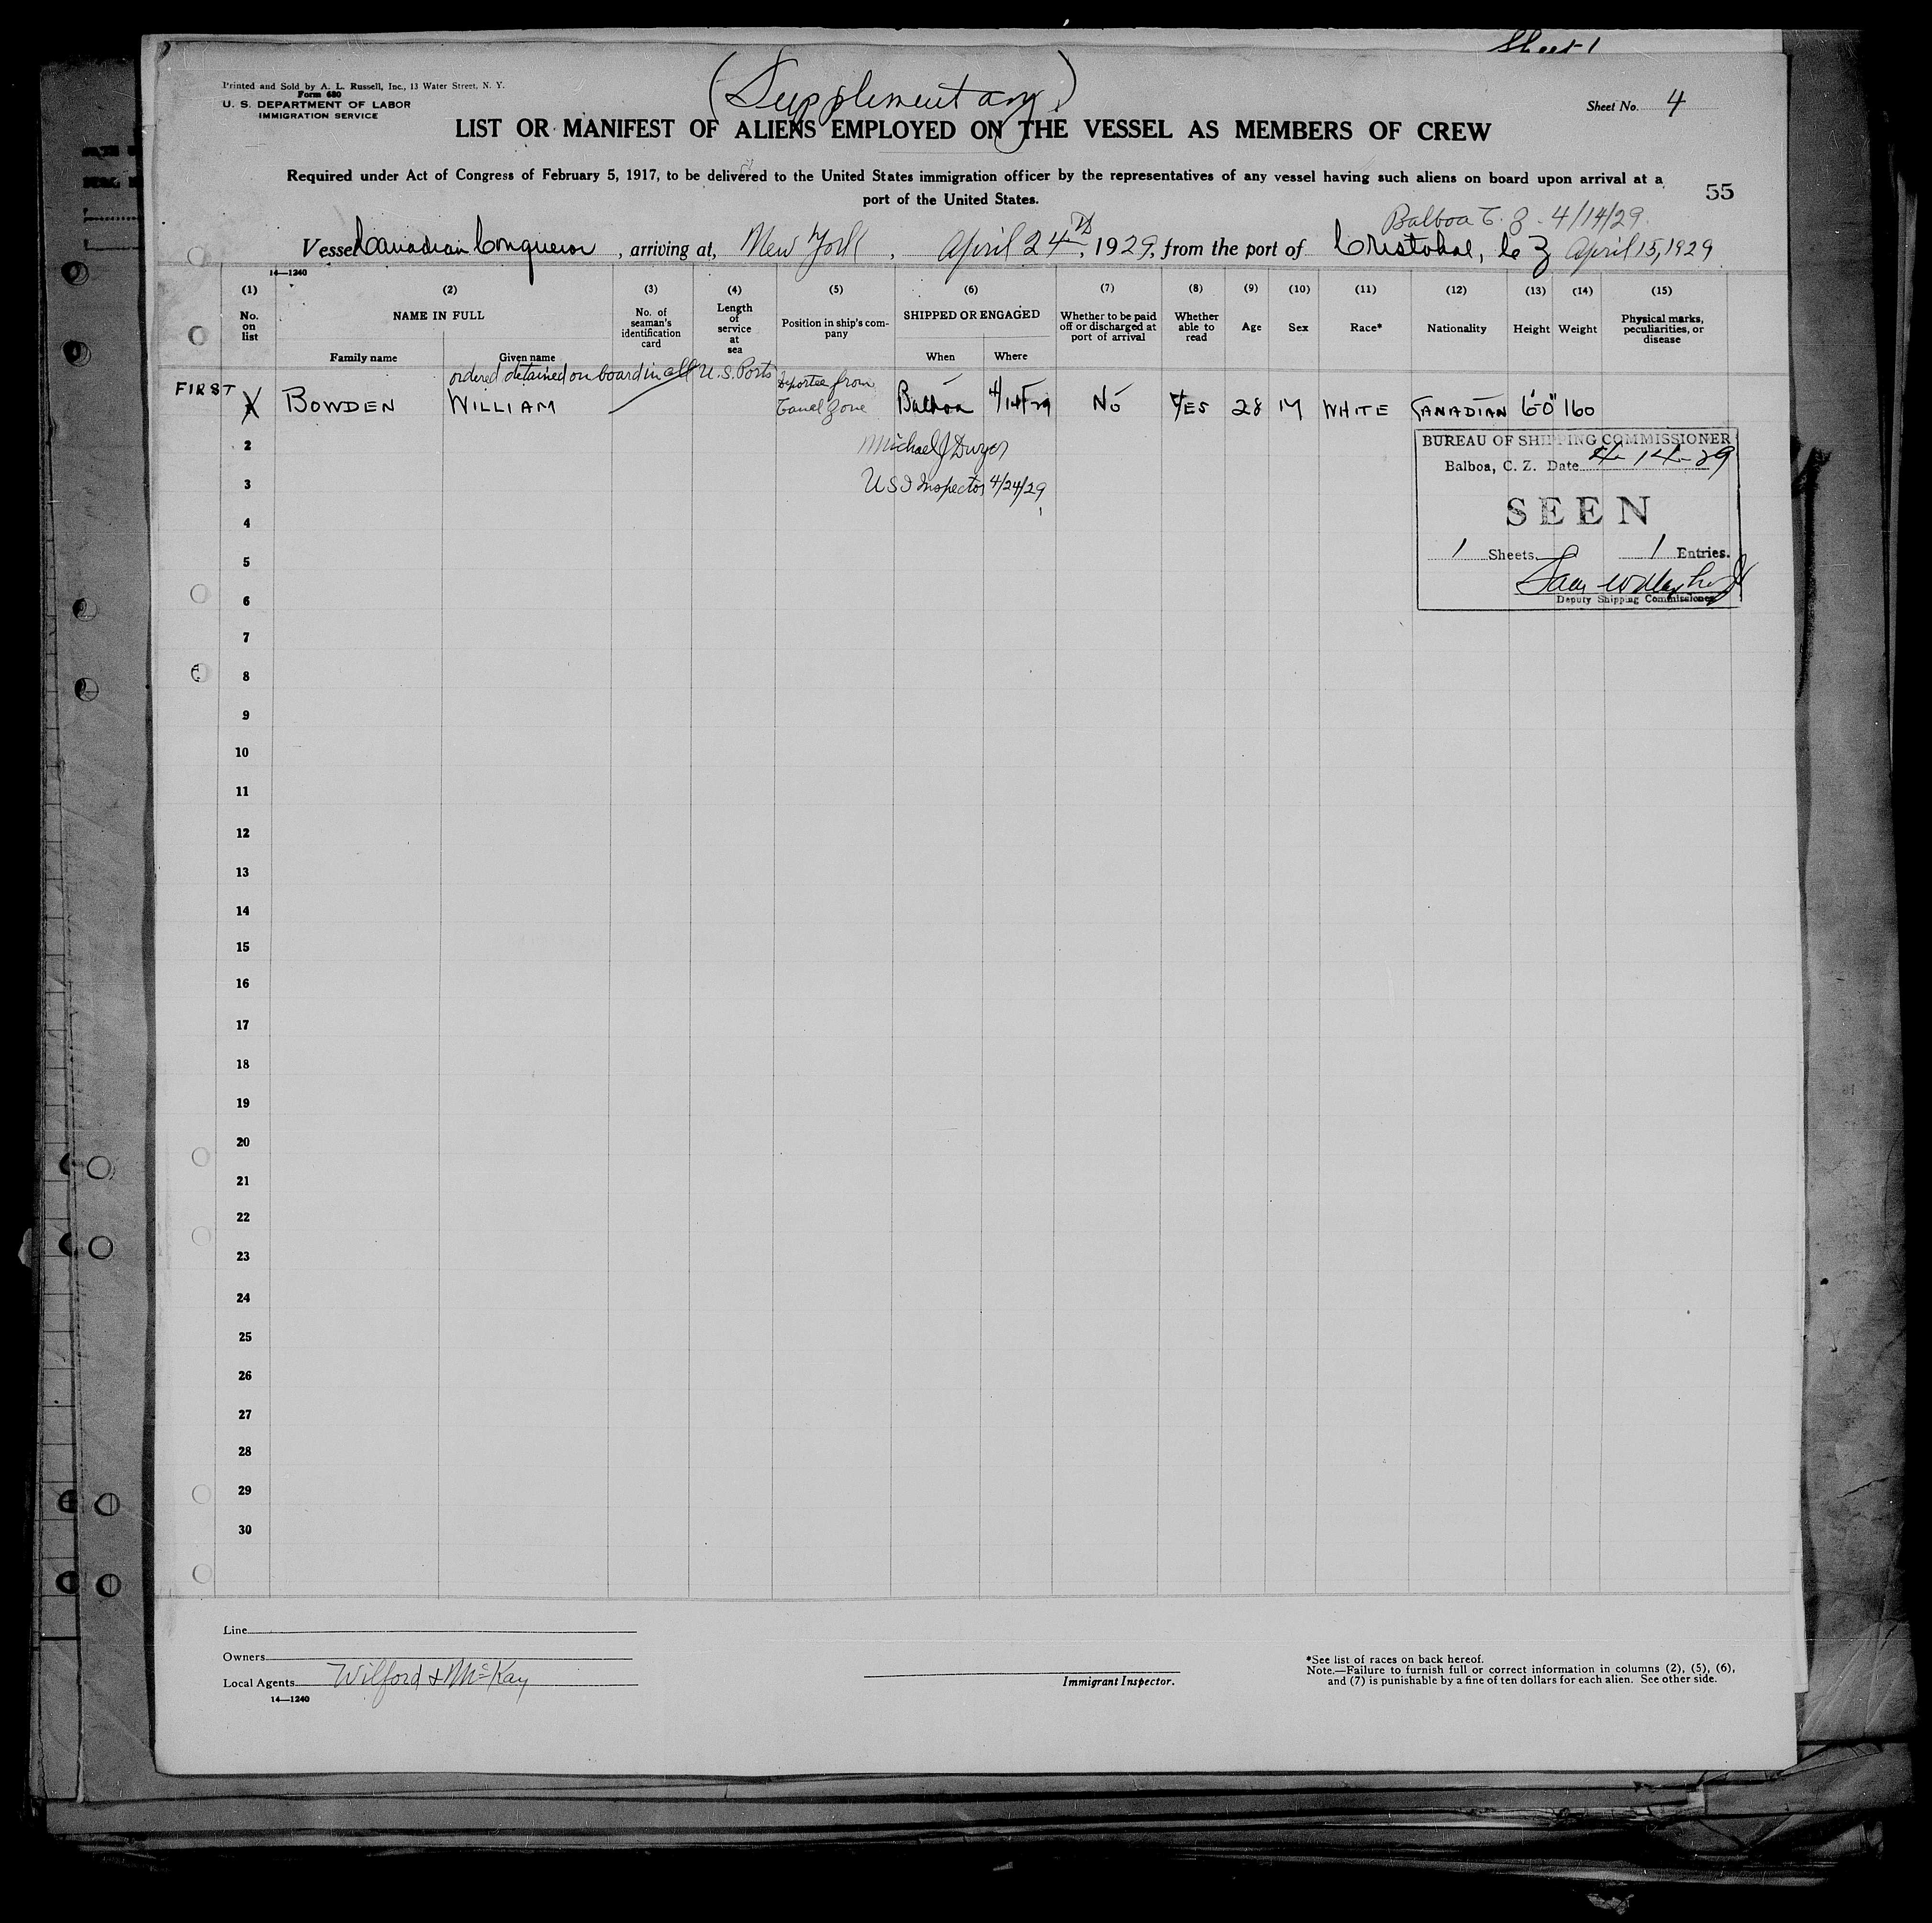 Sheet 1
Printed and Sold by A. L. Russell, Inc., 13 Water Street, N. Y.
Form 680
U. S. DEPARTMENT OF LABOR
IMMIGRATION SERVICE
(Supplementary)
Sheet No. 4
LIST OR MANIFEST OF ALIENS EMPLOYED ON THE VESSEL AS MEMBERS OF CREW
Required under Act of Congress of February 5, 1917, to be delivered to the United States immigration officer by the representatives of any vessel having such aliens on board upon arrival at a
port of the United States.
55
Balboa C. Z. 4/14/29
Vessel Canadian Conqueror, arriving at, New York, April 24th, 1929, from the port of Cristobal, C Z April 15, 1929
14—1240
(1) (2) (3) (4) (5) (6) (7) (8) (9) (10) (11) (12) (13) (14) (15)
No. on list
NAME IN FULL
Family name
Given name
No. of seaman's identification card
Length of service at sea
Position in ship's company
SHIPPED OR ENGAGED
When
Where
Whether to be paid off or discharged at port of arrival
Whether able to read
Age
Sex
Race*
Nationality
Height
Weight
Physical marks, peculiarities, or disease
ordered detained on board in all U.S. Ports
FIRST BOWDEN WILLIAM Deportee from Canal Zone Balboa 4/14/29 NO YES 28 M WHITE CANADIAN 6'-0" 160
Michael J Dwyer
U S I Inspector 4/24/29
BUREAU OF SHIPPING COMMISSIONER
Balboa, C. Z. Date 4-14-29
SEEN
1 Sheets 1 Entries.
Deputy Shipping Commissioner
2
3
4
5
6
7
8
9
10
11
12
13
14
15
16
17
18
19
20
21
22
23
24
25
26
27
28
29
30
Line
Owners
Local Agents Wilford & McKay
14—1240
Immigrant Inspector.
*See list of races on back hereof.
Note.—Failure to furnish full or correct information in columns (2), (5), (6),
and (7) is punishable by a fine of ten dollars for each alien. See other side.